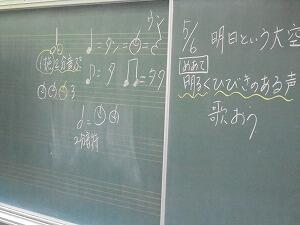 5/6 明日という大空
めあて
明るくひびきのある声
歌おう
ウン
♩=タン=
♩=タ ♫=タタ
3
2分音符